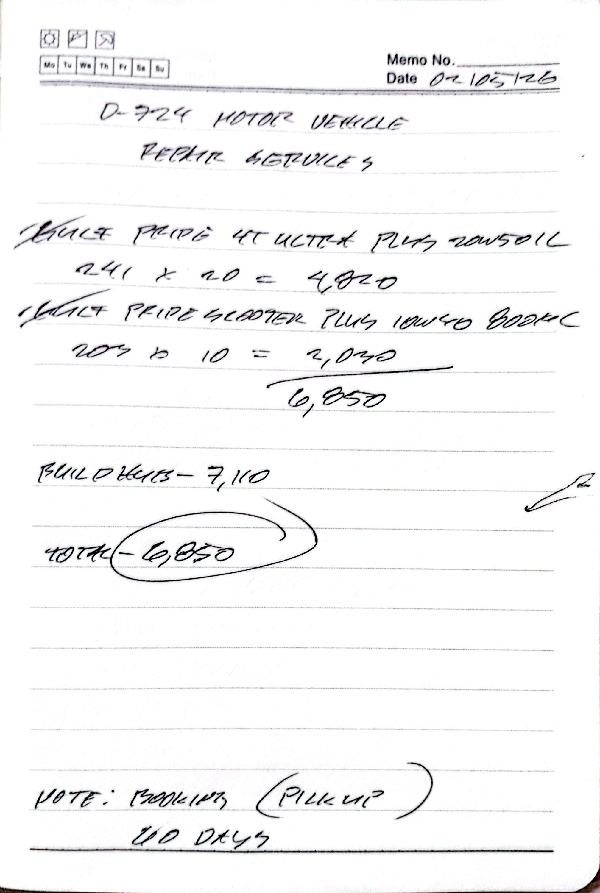 Mo Tu We Th Fr Sa Su
Memo No.
Date 02/05/26
D-724 MOTOR VEHICLE
REPAIR SERVICES
GULF PRIDE 4T ULTRA PLUS 20W50 1L
241 x 20 = 4,820
GULF PRIDE SCOOTER PLUS 10W40 800ML
203 x 10 = 2,030
6,850
BUILDHUB - 7,110
TOTAL - 6,850
NOTE: BOOKING (PICK UP)
60 DAYS